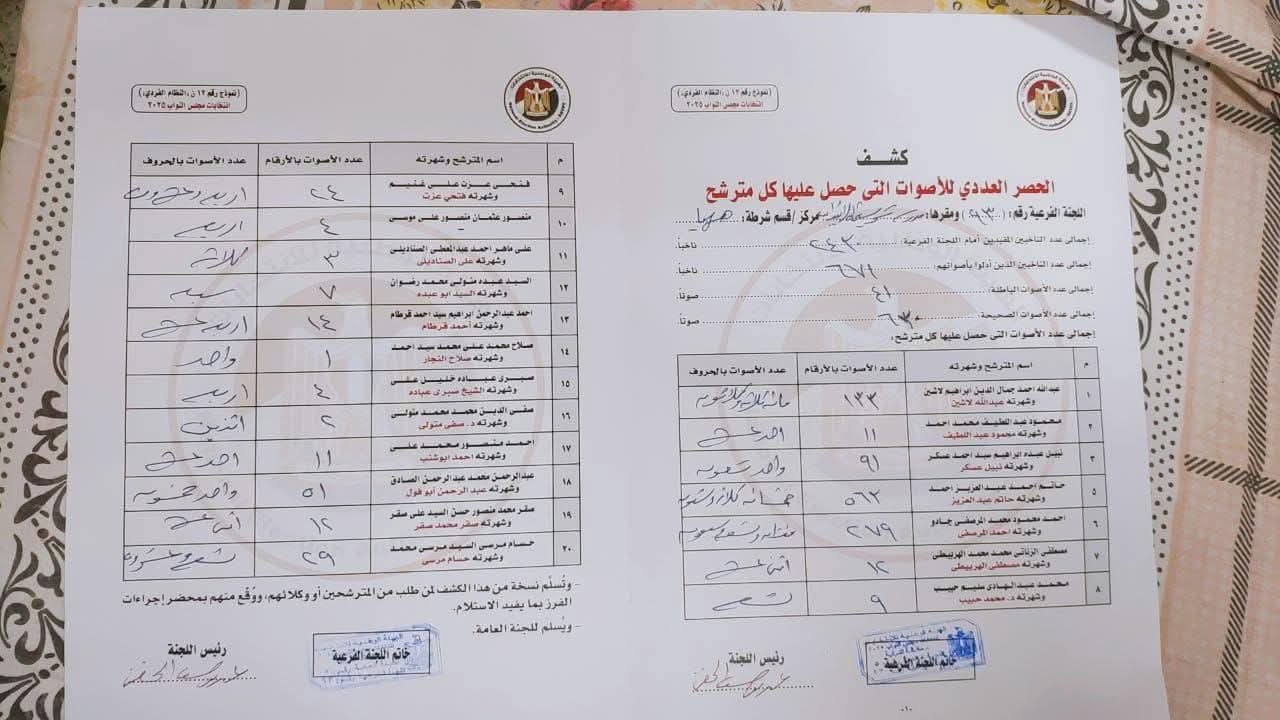 (نموذج رقم ١٢ ن «النظام الفردي»)
انتخابات مجلس النواب ٢٠٢٥
كشف
الحصر العددي للأصوات التى حصل عليها كل مترشح
اللجنة الفرعية رقم: ومقرها: مركز/قسم شرطة: ههيا
إجمالى عدد الناخبين المقيدين أمام اللجنة الفرعية: ٢٤٣٠ ناخباً.
إجمالى عدد الناخبين الذين أدلوا بأصواتهم: ٦٧١ ناخباً.
إجمالى عدد الأصوات الباطلة: ٤١ صوتاً.
إجمالى عدد الأصوات الصحيحة: ٦٣٠ صوتاً.
إجمالى عدد الأصوات التى حصل عليها كل مترشح:
م اسم المترشح وشهرته عدد الأصوات بالأرقام عدد الأصوات بالحروف
١ عبدالله احمد جمال الدين ابراهيم لاشين ١٣٣
وشهرته عبدالله لاشين
٢ محمود عبد اللطيف محمد احمد ١١ احد عشر
وشهرته محمود عبد اللطيف
٣ نبيل عبده ابراهيم سيد احمد عسكر ٩١ واحد تسعون
وشهرته نبيل عسكر
٥ حاتم احمد عبد العزيز احمد ٥٦٣
وشهرته حاتم عبد العزيز
٦ احمد محمود محمد المرصفى جادو ٢٧٩
وشهرته احمد المرصفى
٧ مصطفى الزناتى محمد محمد الهربيطى ١٢ اثنى عشر
وشهرته مصطفى الهربيطى
٨ محمد عبد الهادى سليم حبيب ٩ تسعة
وشهرته د. محمد حبيب
خاتم اللجنة الفرعية
رئيس اللجنة
-١٠-
(نموذج رقم ١٢ ن «النظام الفردي»)
انتخابات مجلس النواب ٢٠٢٥
م اسم المترشح وشهرته عدد الأصوات بالأرقام عدد الأصوات بالحروف
٩ فتحى عزت على غنيم ٢٤ اربعه وعشرون
وشهرته فتحي عزت
١٠ منصور عثمان منصور على موسى ٤ اربعه
-
١١ على ماهر احمد عبدالمعطى الصناديلى ٣ ثلاثه
وشهرته على الصناديلى
١٢ السيد عبده متولى محمد رضوان ٧ سبعه
وشهرته السيد ابو عبده
١٣ احمد عبدالرحمن ابراهيم سيد احمد قرطام ١٤ اربعه عشر
وشهرته أحمد قرطام
١٤ صلاح محمد على محمد سيد احمد ١ واحد
وشهرته صلاح النجار
١٥ صبرى عباده خليل على ٤ اربعه
وشهرته الشيخ صبرى عباده
١٦ صفى الدين محمد محمد متولى ٢ اثنين
وشهرته د. صفى متولى
١٧ احمد منصور محمد على ١١ احد عشر
وشهرته احمد ابوشنب
١٨ عبدالرحمن محمد عبد الرحمن الصادق ٥١ واحد خمسون
وشهرته عبد الرحمن أبو فول
١٩ صقر محمد منصور حسن السيد على صقر ١٢ اثنى عشر
وشهرته صقر محمد صقر
٢٠ حسام مرسى السيد مرسى محمد ٢٩ تسعه وعشرون
وشهرته حسام مرسى
- وتُسلَّم نسخة من هذا الكشف لمن طلب من المترشحين أو وكلائهم، ووُقِّع منهم بمحضر إجراءات
الفرز بما يفيد الاستلام.
- ويُسلم للجنة العامة.
خاتم اللجنة الفرعية
رئيس اللجنة